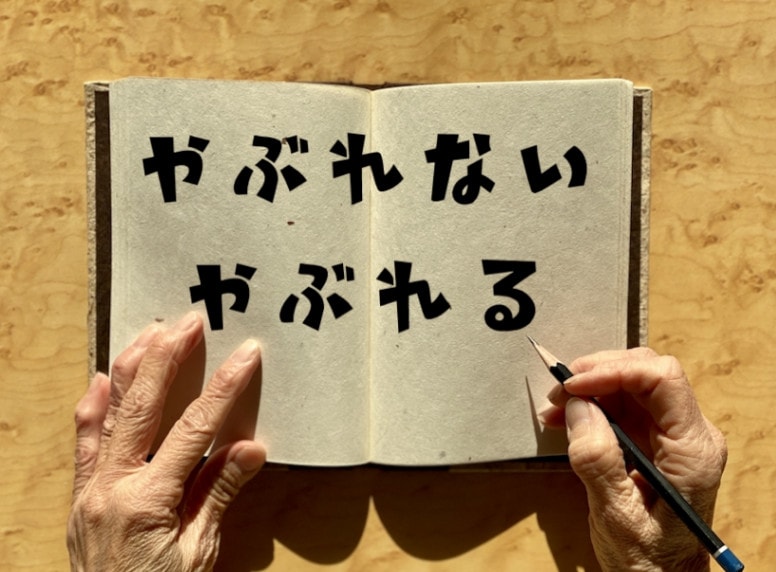 やぶれない
やぶれる